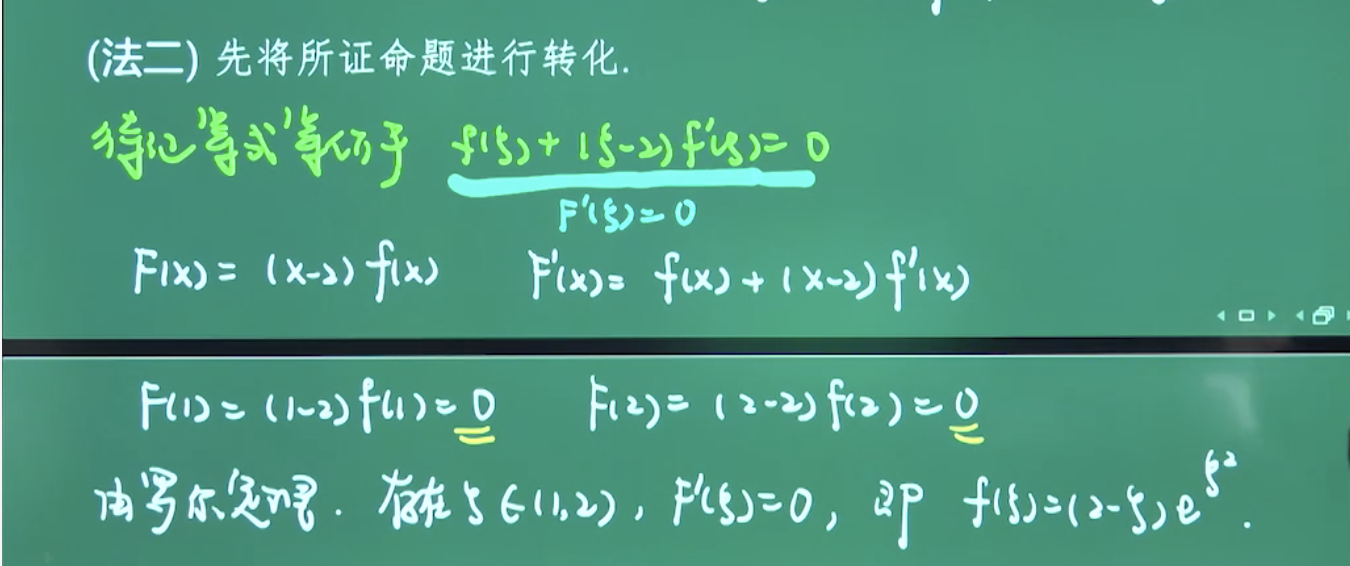 (法二) 先将所证命题进行转化.
待证等式等价于 f(ξ)+(ξ-2)f'(ξ)=0
F'(ξ)=0
F(x)=(x-2)f(x) F'(x)=f(x)+(x-2)f'(x)
F(1)=(1-2)f(1)=0 F(2)=(2-2)f(2)=0
由罗尔定理. 存在ξ∈(1,2), F'(ξ)=0, 即 f(ξ)=(2-ξ)e^ξ².